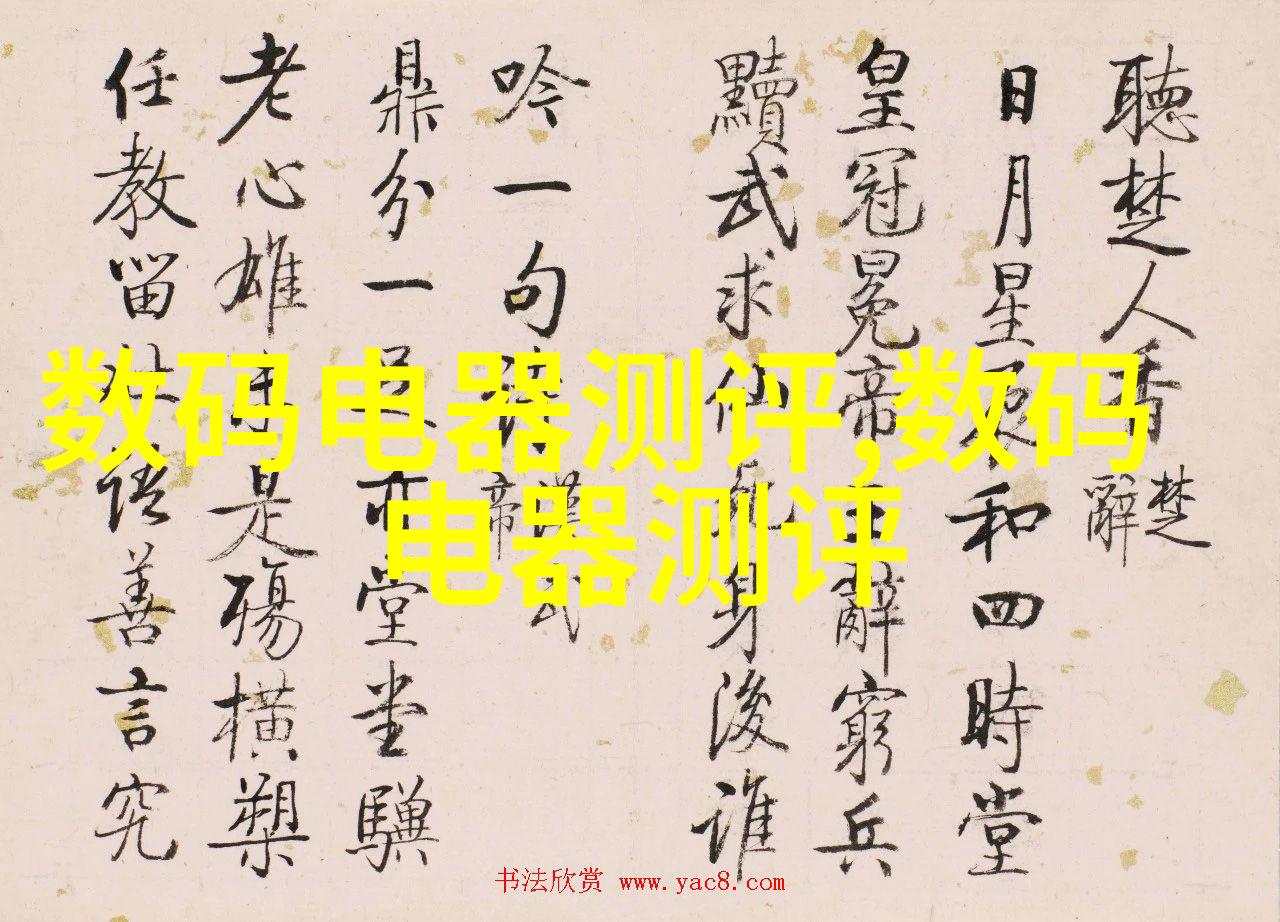 聽楚人香 楚辭
日月星辰和四時堂
皇冠冕帝王辭窮兵
黷武求仙死身後誰
吟一句 漢武帝
鼎分一亦堂堂驥
老心雄是殤橫槊
任教留語善言究
数码电器测评,数码
电器测评
书法欣赏 www.yac8.com